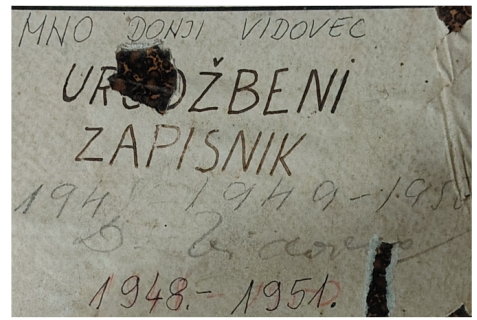 MNO DONJI VIDOVEC
URUDŽBENI
ZAPISNIK
1948 1949-1950
D. Vidovec
1948.- 1951.